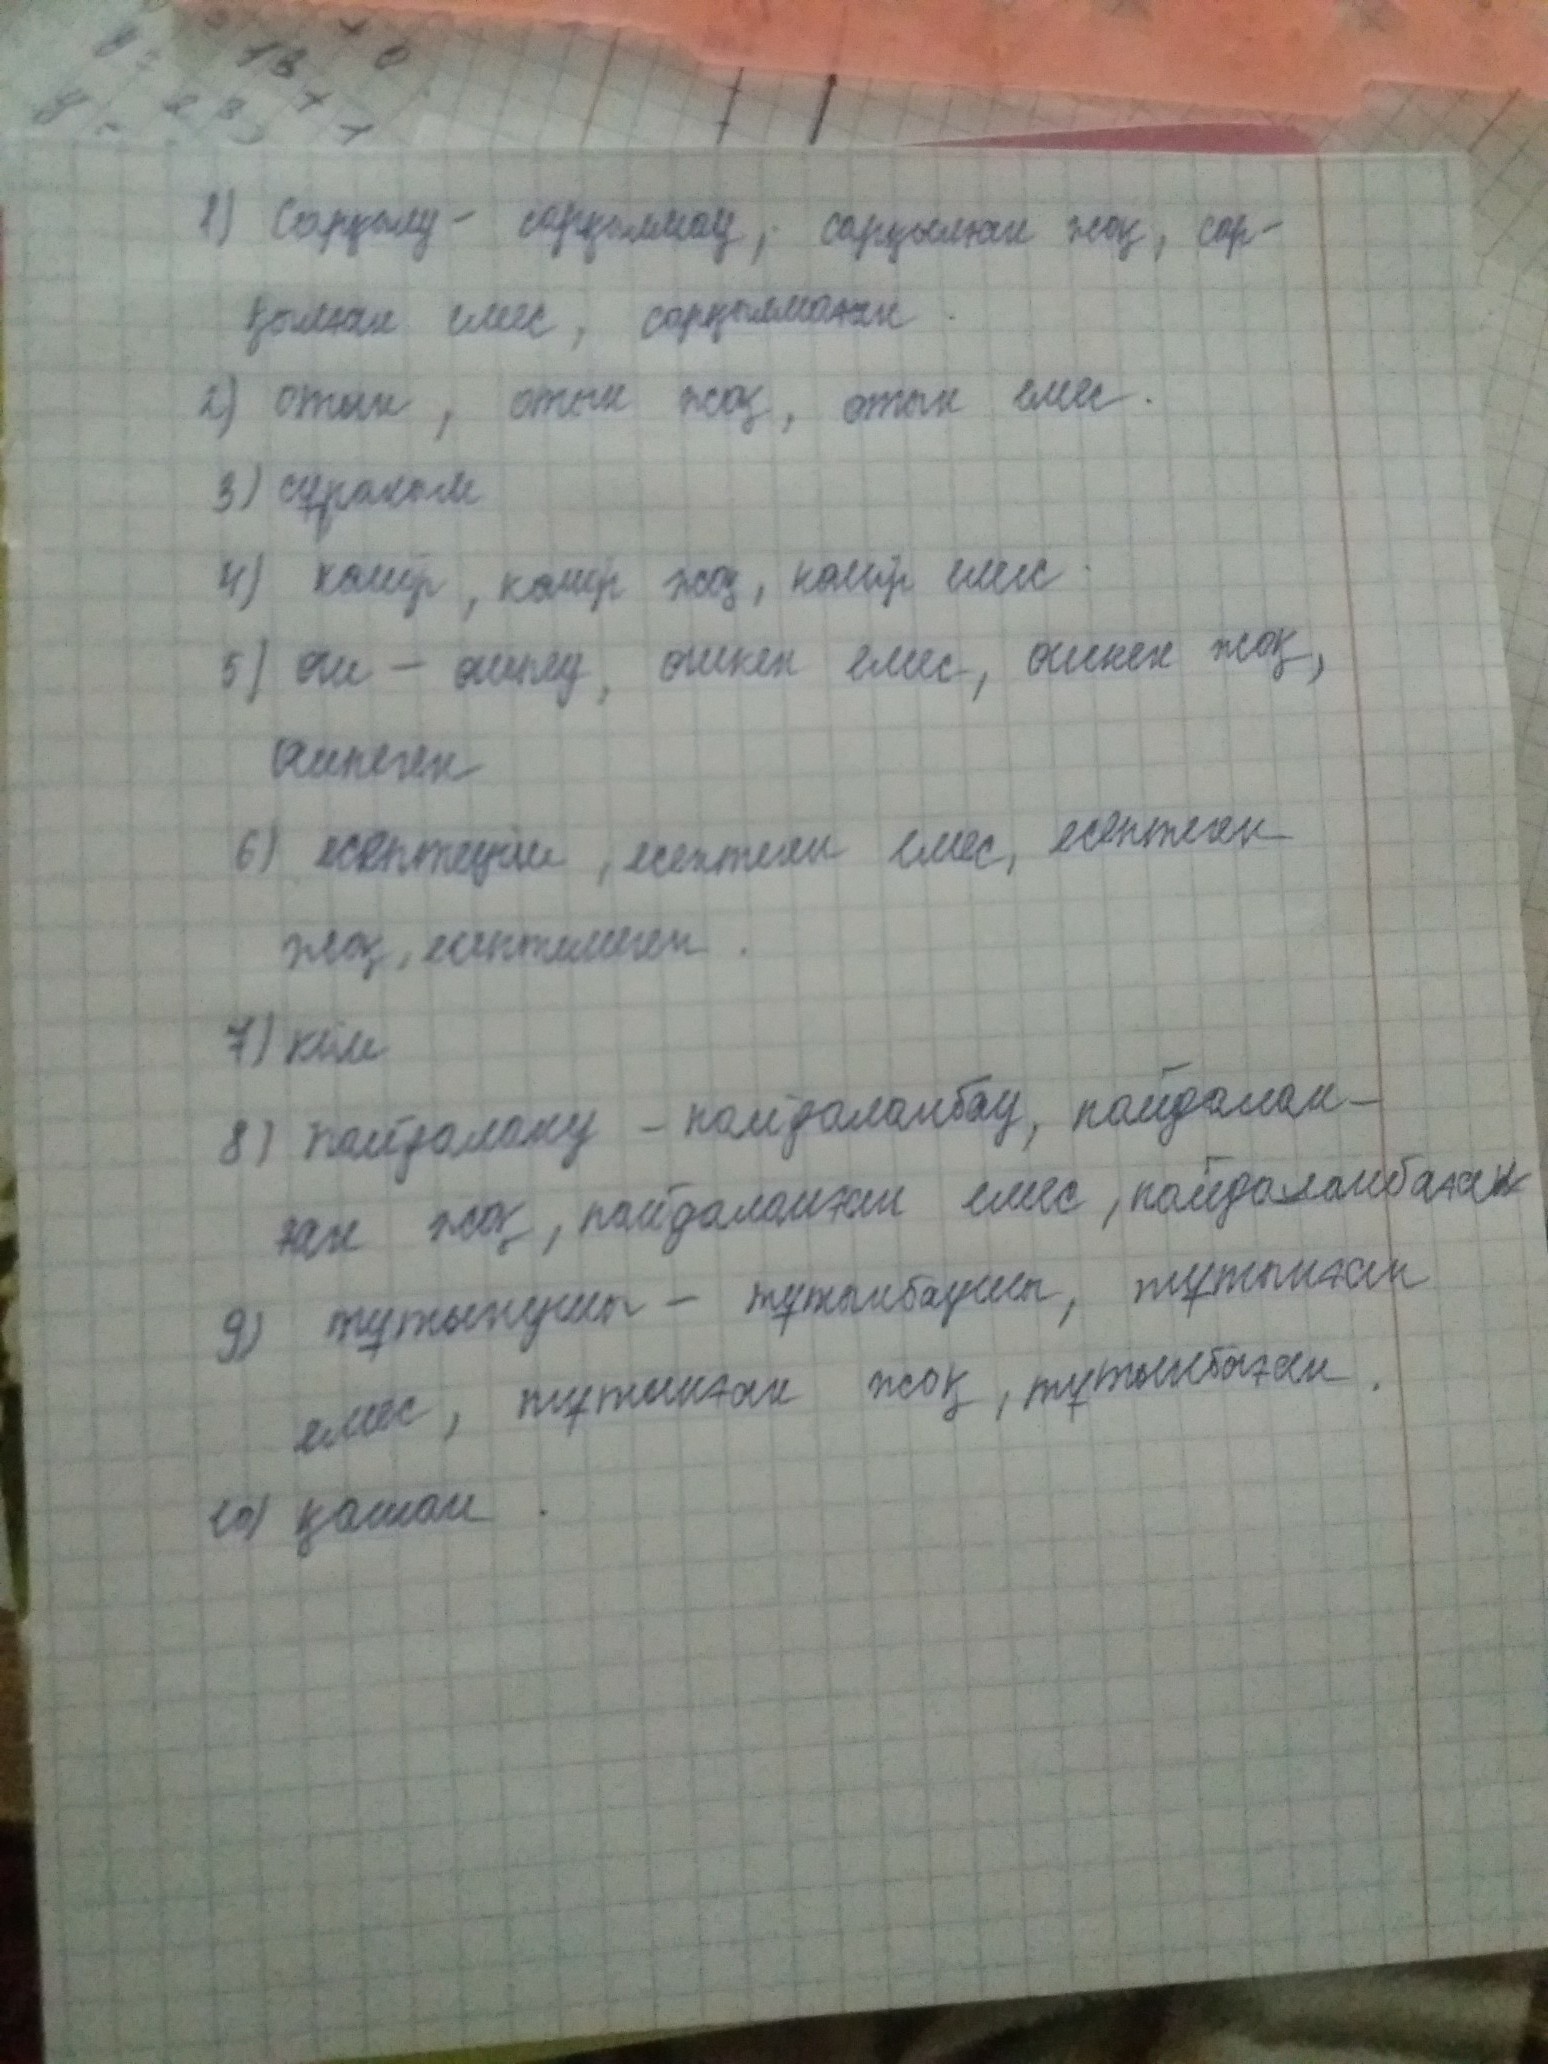 1) Сарқылу - сарқылмау, сарқылған жоқ, сар-
қылған емес, сарқылмаған.
2) отын, отын жоқ, отын емес.
3) сұраным
4) көмір, көмір жоқ, көмір емес.
5) өш - өшпеу, өшкен емес, өшкен жоқ,
өшпеген
6) есептеуіш, есептеген емес, есептеген
жоқ, есептемеген.
7) кім
8) пайдалану - пайдаланбау, пайдалан-
ған жоқ, пайдаланған емес, пайдаланбаған
9) тұтынушы - тұтынбаушы, тұтынған
емес, тұтынған жоқ, тұтынбаған.
10) қашан.